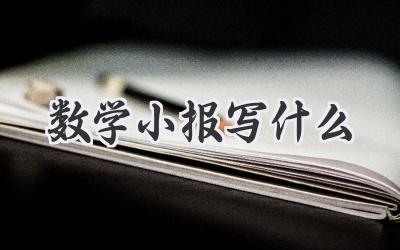 数学小报写什么